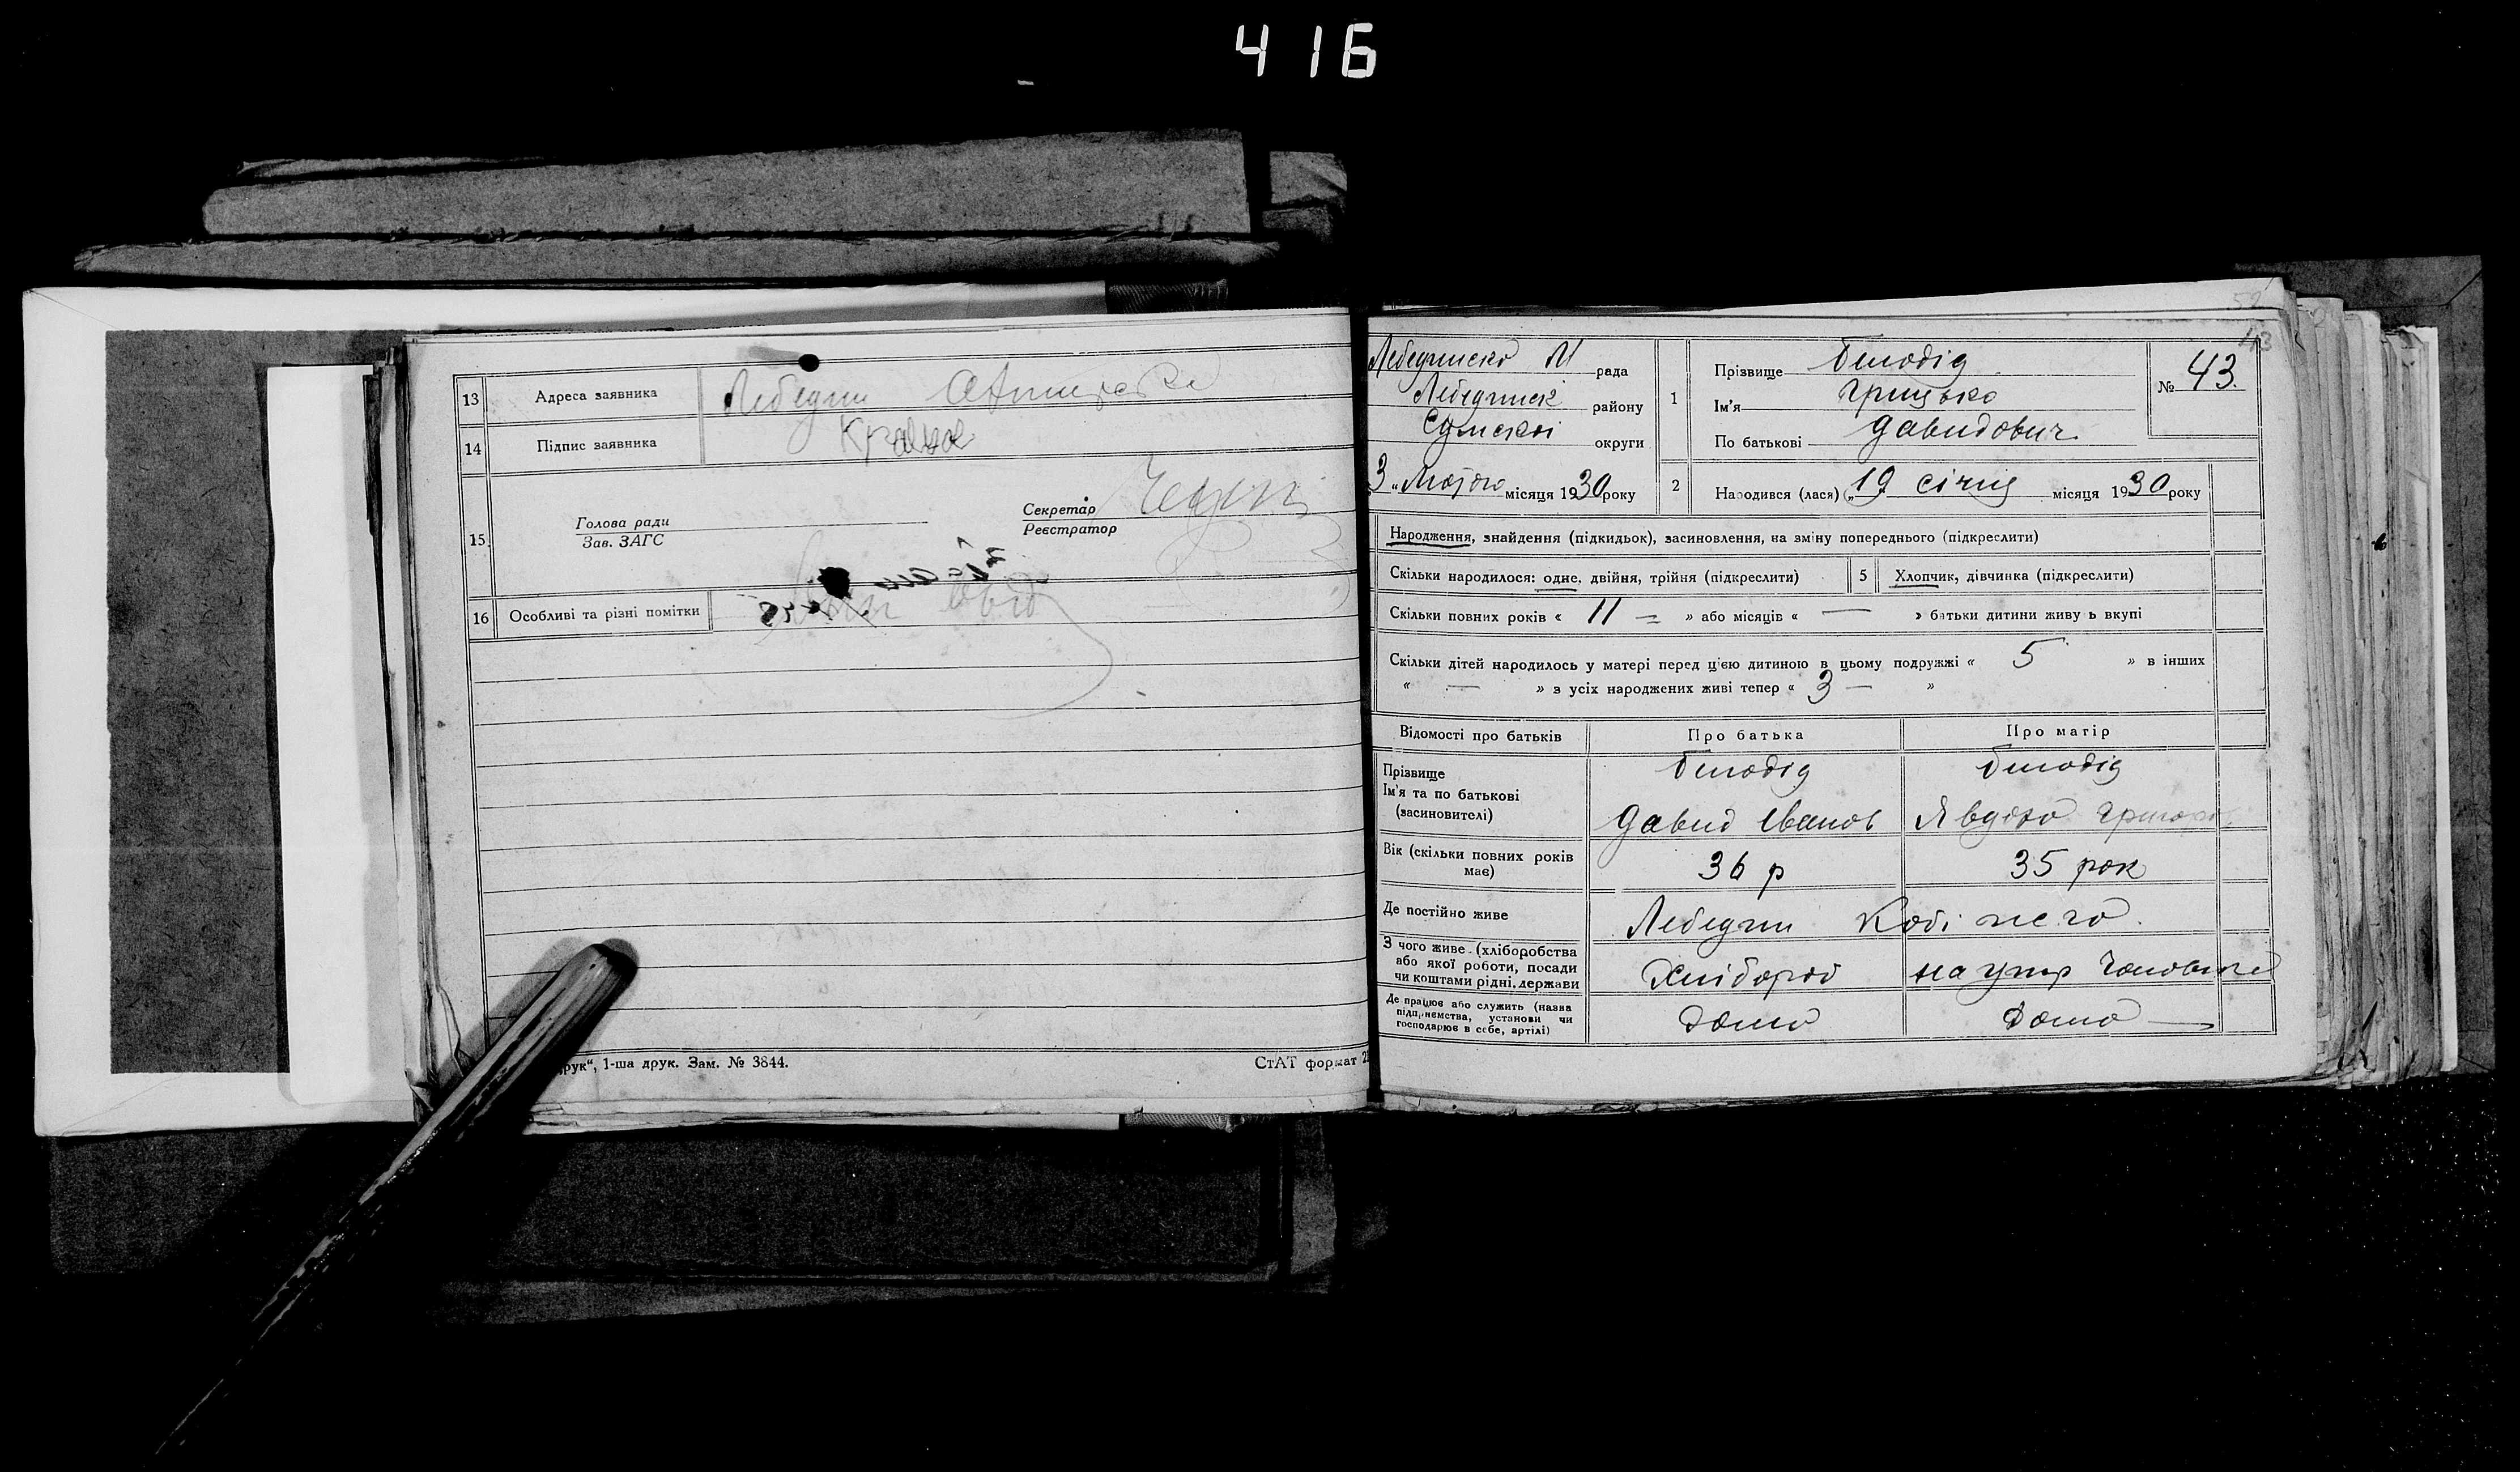 416
13 Адреса заявника Лебедин
14 Підпис заявника
15 Голова ради
Зав. ЗАГС
Секретар
Реєстратор
16 Особливі та різні помітки
рук“, 1-ша друк. Зам. № 3844.
СтАТ формат
43
Лебединсько М рада
Лебединськ району
Сумської округи
3 „ Лютого місяця 1930 року
1 Прізвище Білодід
Ім'я Грицько
По батькові Давидович
№ 43.
2 Народився (лася) „19 січня місяця 1930 року
Народження, знайдення (підкидьок), засиновлення, на зміну попереднього (підкреслити)
Скільки народилося: одне, двійня, трійня (підкреслити)
5 Хлопчик, дівчинка (підкреслити)
Скільки повних років « 11 — » або місяців « — » батьки дитини живуь вкупі
Скільки дітей народилось у матері перед цією дитиною в цьому подружжі « 5 » в інших
« — » з усіх народжених живі тепер « 3 — »
Відомості про батьків Про батька Про матір
Прізвище Білодід Білодід
Ім'я та по батькові
(засиновителі) Давид Іванов Явдоха
Вік (скільки повних років
має) 36 р 35 рок
Де постійно живе Лебедин
З чого живе (хліборобства
або якої роботи, посади
чи коштами рідні, держави Хлібороб на утр чоловіка
Де працює або служить (назва
підприємства, установи чи
господарює в себе, артілі) Дома Дома —